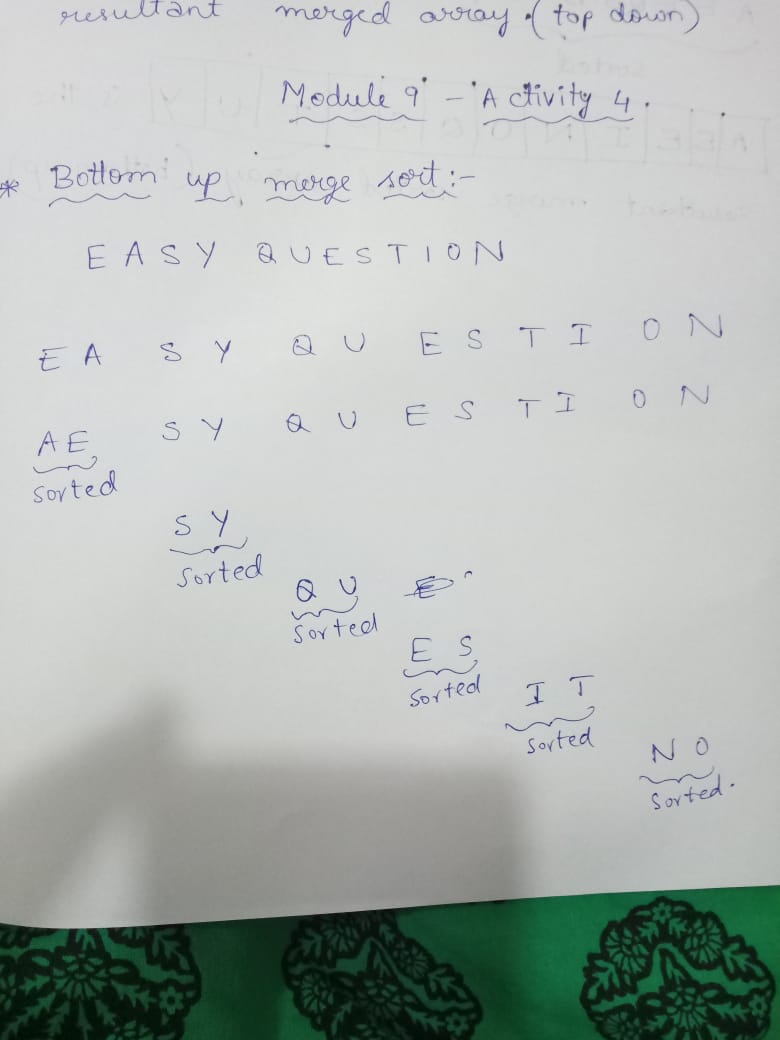 resultant merged array. (top down)
Module 9 - Activity 4.
* Bottom up merge sort :-
E A S Y Q U E S T I O N
E A S Y Q U E S T I O N
A E S Y Q U E S T I O N
sorted
S Y
Sorted
Q U
Sorted
E S
Sorted
I T
Sorted
N O
Sorted.